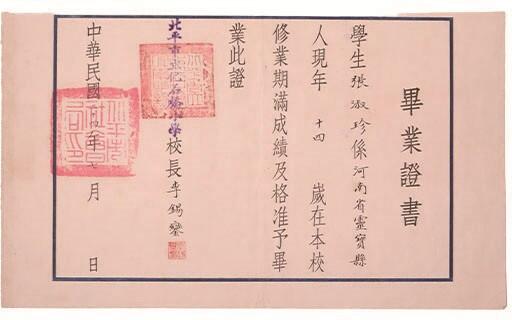 畢業證書
學生張淑珍係河南省靈寶縣
人現年十四歲在本校
修業期滿成績及格准予畢
業此證
北平市立化石橋小學校長李錫鑾
中華民國 年 月 日